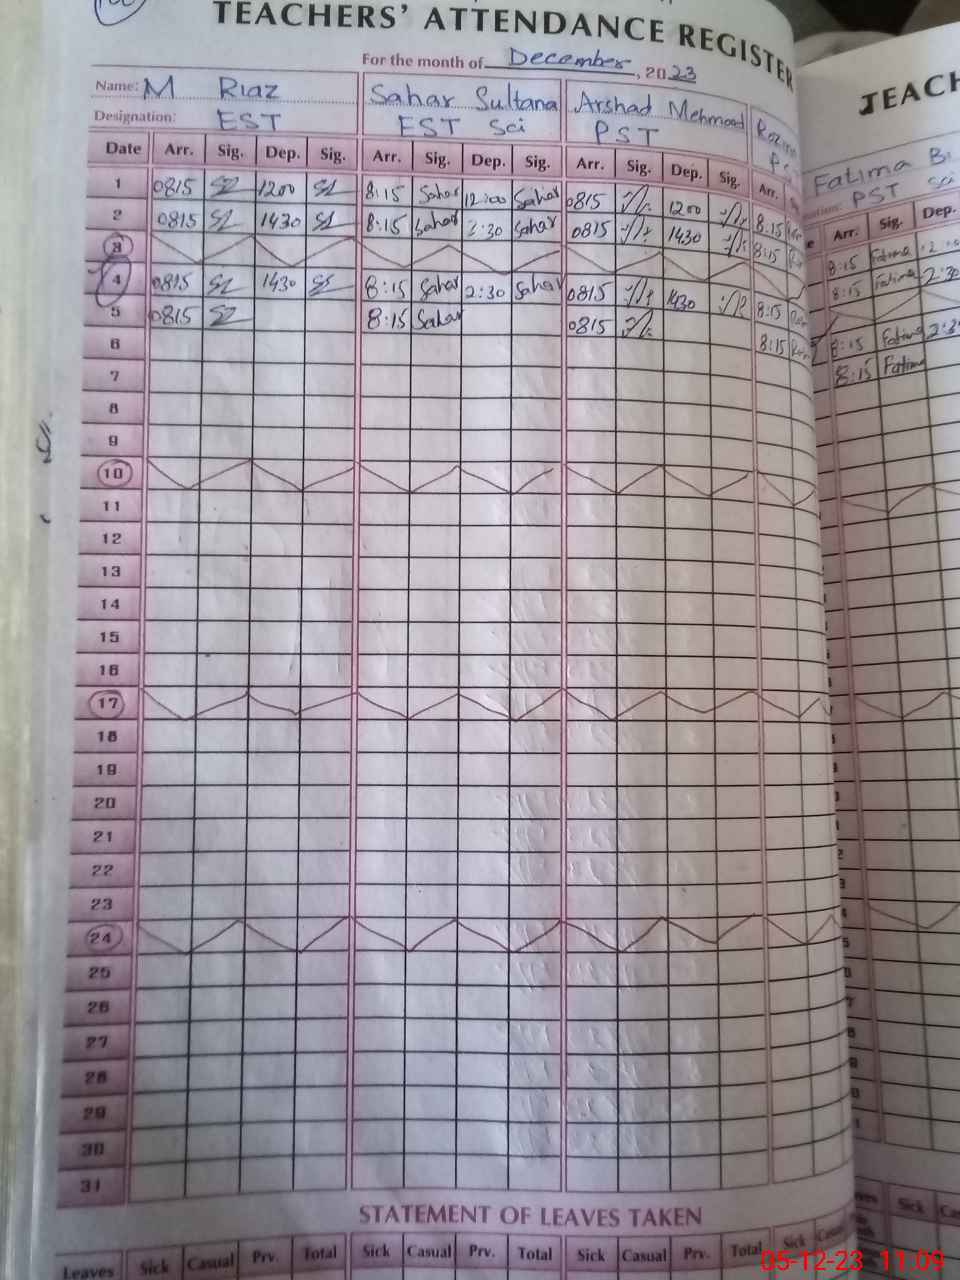 TEACHERS' ATTENDANCE REGISTER
For the month of December, 2023
Name: M Riaz Sahar Sultana Arshad Mehmood
Designation: EST EST Sci PST
Date Arr. Sig. Dep. Sig. Arr. Sig. Dep. Sig. Arr. Sig. Dep. Sig. Arr.
1 0815 1200 8:15 Sahar 12:00 Sahar 0815 1200 8:15
2 0815 1430 8:15 Sahar 2:30 Sahar 0815 1430 8:15
3
4 0815 1430 8:15 Sahar 2:30 Sahar 0815 1430 8:15
5 0815 8:15 Sahar 0815 8:15
6
7
8
9
10
11
12
13
14
15
16
17
18
19
20
21
22
23
24
25
26
27
28
29
30
31
STATEMENT OF LEAVES TAKEN
Leaves Sick Casual Prv. Total Sick Casual Prv. Total Sick Casual Prv. Total Sick
TEACH
Fatima Bi
PST Sci
Arr. Sig. Dep.
8:15 Fatima
8:15 Fatima 2:30
8:15 Fatima
8:15 Fatima
Sick
05-12-23 11:09